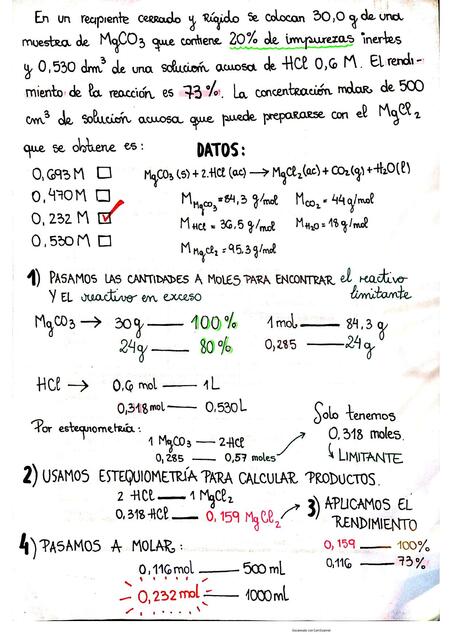 En un recipiente cerrado y Rígido se colocan 30,0 g de una
muestra de MgCO3 que contiene 20% de impurezas inertes
y 0,530 dm³ de una solución acuosa de HCl 0,6 M. El rendi-
miento de la reacción es 73%. La concentración molar de 500
cm³ de solución acuosa que puede prepararse con el MgCl2
que se obtiene es:
DATOS:
0,693 M
MgCO3 (s) + 2.HCl (ac) → MgCl2(ac) + CO2(g) + H2O(l)
0,470 M
MMgCO3 = 84,3 g/mol MCO2 = 44 g/mol
0,232 M
MHCl = 36,5 g/mol MH2O = 18 g/mol
0,530 M
MMgCl2 = 95.3 g/mol
1) PASAMOS LAS CANTIDADES A MOLES PARA ENCONTRAR el reactivo
Y EL reactivo en exceso limitante
MgCO3 → 30g — 100% 1 mol — 84,3 g
24g — 80% 0,285 — 24g
HCl → 0.6 mol — 1L
0,318 mol — 0,530L
Por estequiometría:
1 MgCO3 — 2HCl
0,285 — 0,57 moles
Solo tenemos
0,318 moles.
LIMITANTE
2) USAMOS ESTEQUIOMETRÍA PARA CALCULAR PRODUCTOS.
2 HCl — 1 MgCl2
0,318 HCl — 0,159 MgCl2
3) APLICAMOS EL
RENDIMIENTO
0,159 — 100%
0,116 — 73%
4) PASAMOS A MOLAR:
0,116 mol — 500 mL
0,232 mol — 1000 mL
Escaneado con CamScanner